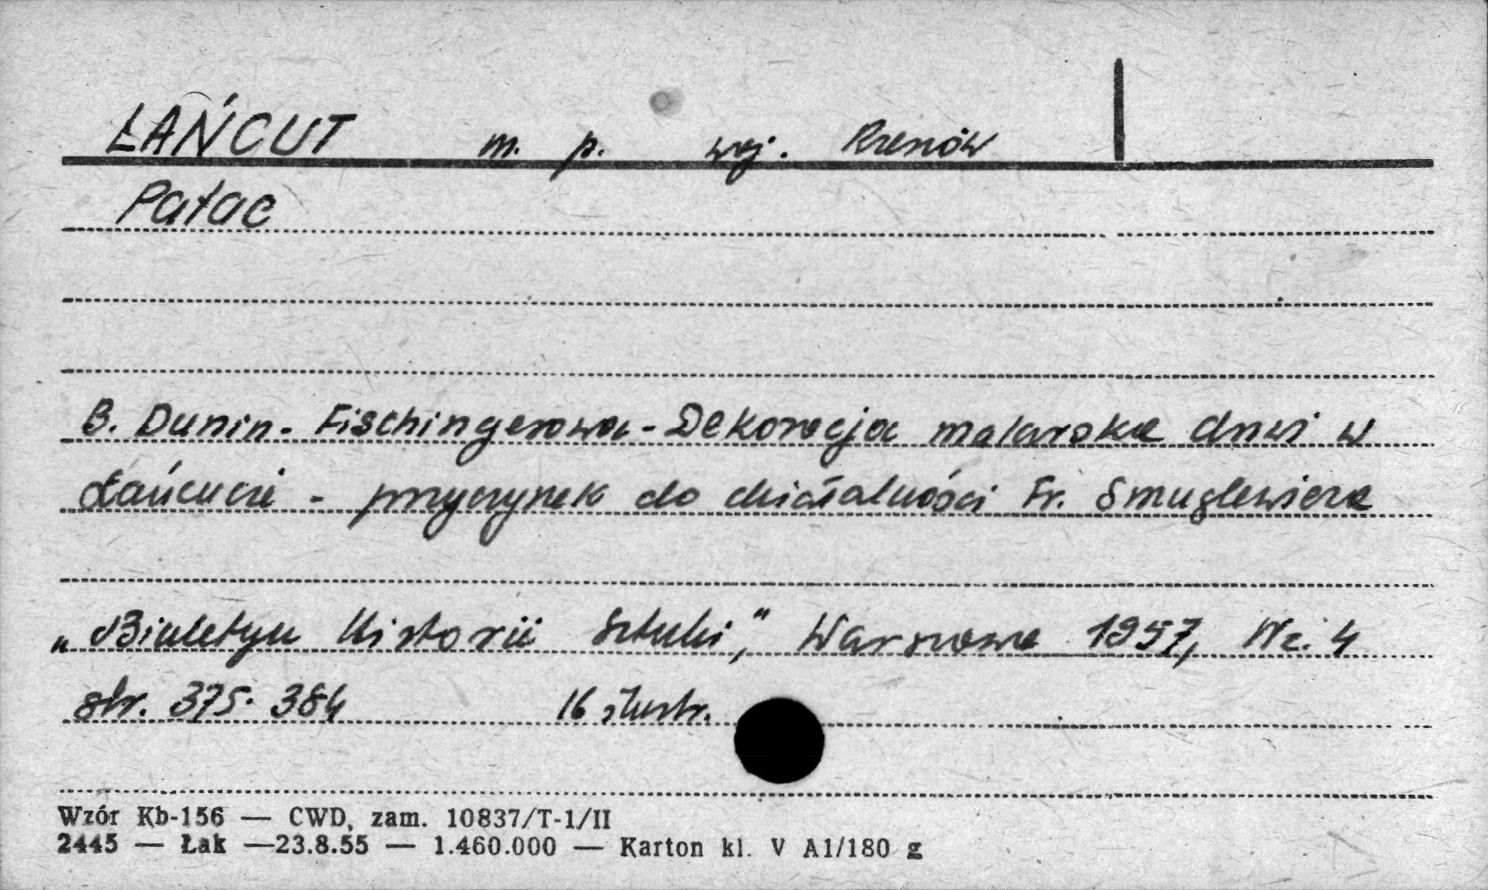 ŁAŃCUT m. p. woj. Rzeszów
Pałac
B. Dunin-Fischingerowa - Dekoracja malarska drzwi w
Łańcucie - przyczynek do działalności Fr. Smuglewicza
„Biuletyn Historii Sztuki," Warszawa 1957, Nr. 4
str. 375-384 16 ilustr.
Wzór Kb-156 — CWD, zam. 10837/T-1/II
2445 — Łak —23.8.55 — 1.460.000 — Karton kl. V A1/180 g